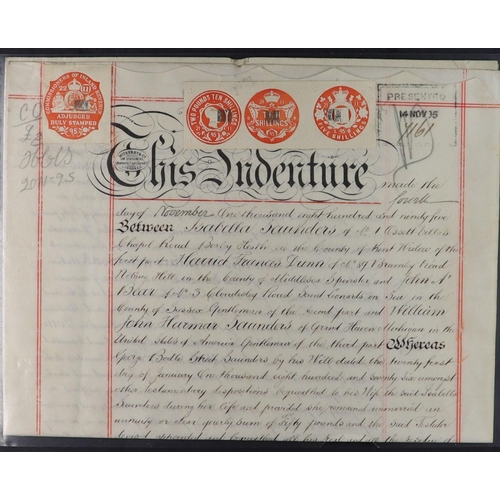 COMMISSIONERS OF INLAND REVENUE
22 11
ADJUDGED
DULY STAMPED
95
TWO POUNDS TEN SHILLINGS
TEN
SHILLINGS
FIVE SHILLINGS
PRESENTED
14 NOV 95
1161
2011-95
This Indenture made the fourth
day of November One thousand eight hundred and ninety five
Between Isabella Saunders of No 1 Villas
Chapel Road Bexley Heath in the County of Kent Widow of the
first part Harriet Frances Dunn of No 39 Bramley Road
Notting Hill in the County of Middlesex Spinster and John
Bear of No 3 Road Saint Leonards on Sea in the
County of Sussex Gentleman of the second part and William
John Harmar Saunders of Grand Haven Michigan in the
United States of America Gentleman of the third part Whereas
George Bodle Street Saunders by his Will dated the twenty first
day of January One thousand eight hundred and seventy six amongst
other testamentary dispositions bequeathed to his Wife the said Isabella
Saunders during her life and provided she remained unmarried an
annuity or clear yearly sum of Fifty pounds and the said Testator